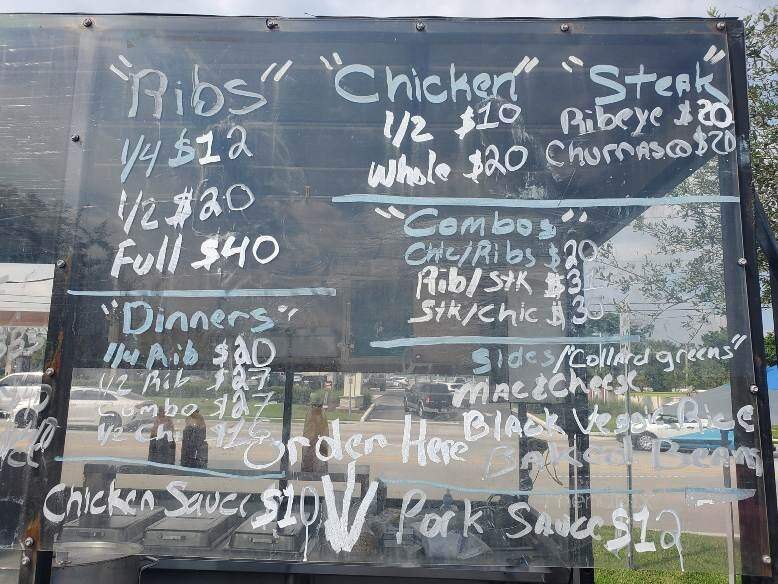 "Ribs"
1/4 $12
1/2 $20
Full $40
"Chicken"
1/2 $10
Whole $20
"Steak"
Ribeye $20
Churrasco $20
"Combos"
Chic/Ribs $20
Rib/Stk
Stk/Chic $30
"Dinners"
1/4 Rib $20
1/2 Rib $27
Combo $27
1/2 Ch
Sides/"Collard greens"
Mac & Cheese
Black Veggie Rice
Baked Bean
Order Here
Chicken Sauce $10
Pork Sauce $12